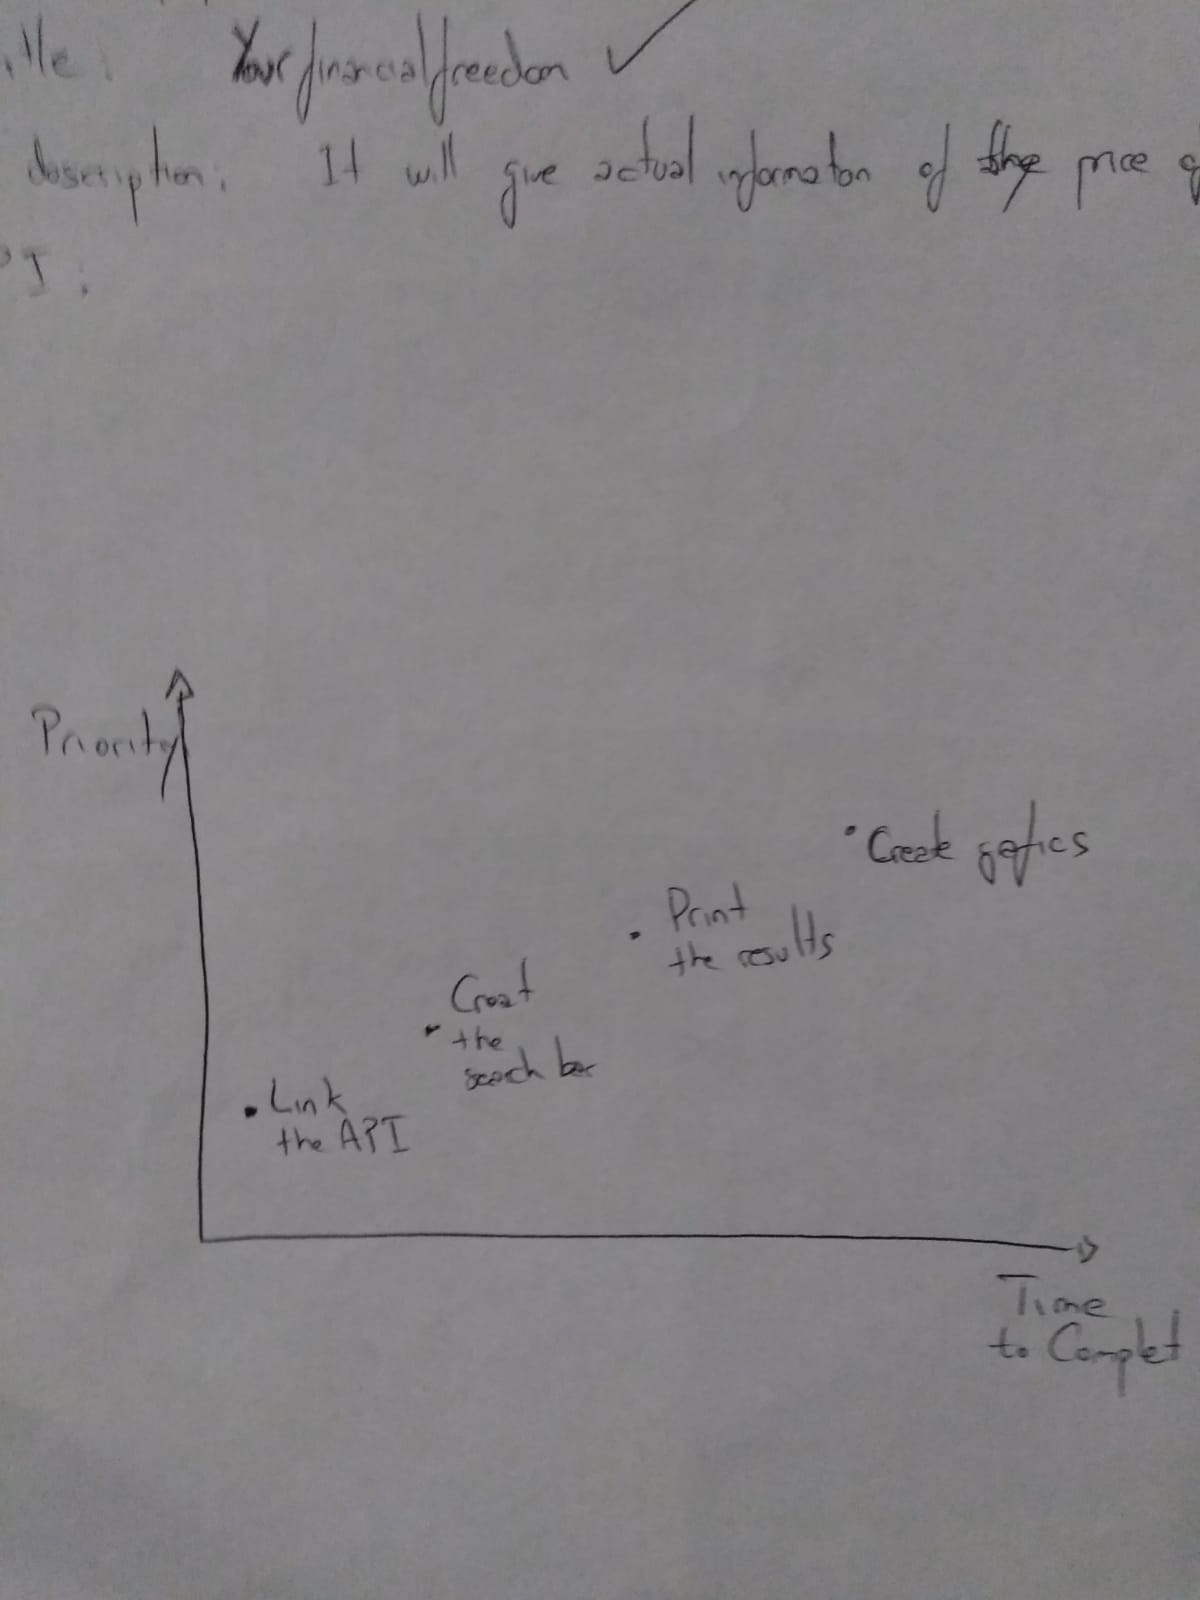 itle: Your financial freedom
description: It will give actual information of the price
PI:
Priority
Create gafics
Print
the results
Creat
the
search bar
Link
the API
Time
to Complet